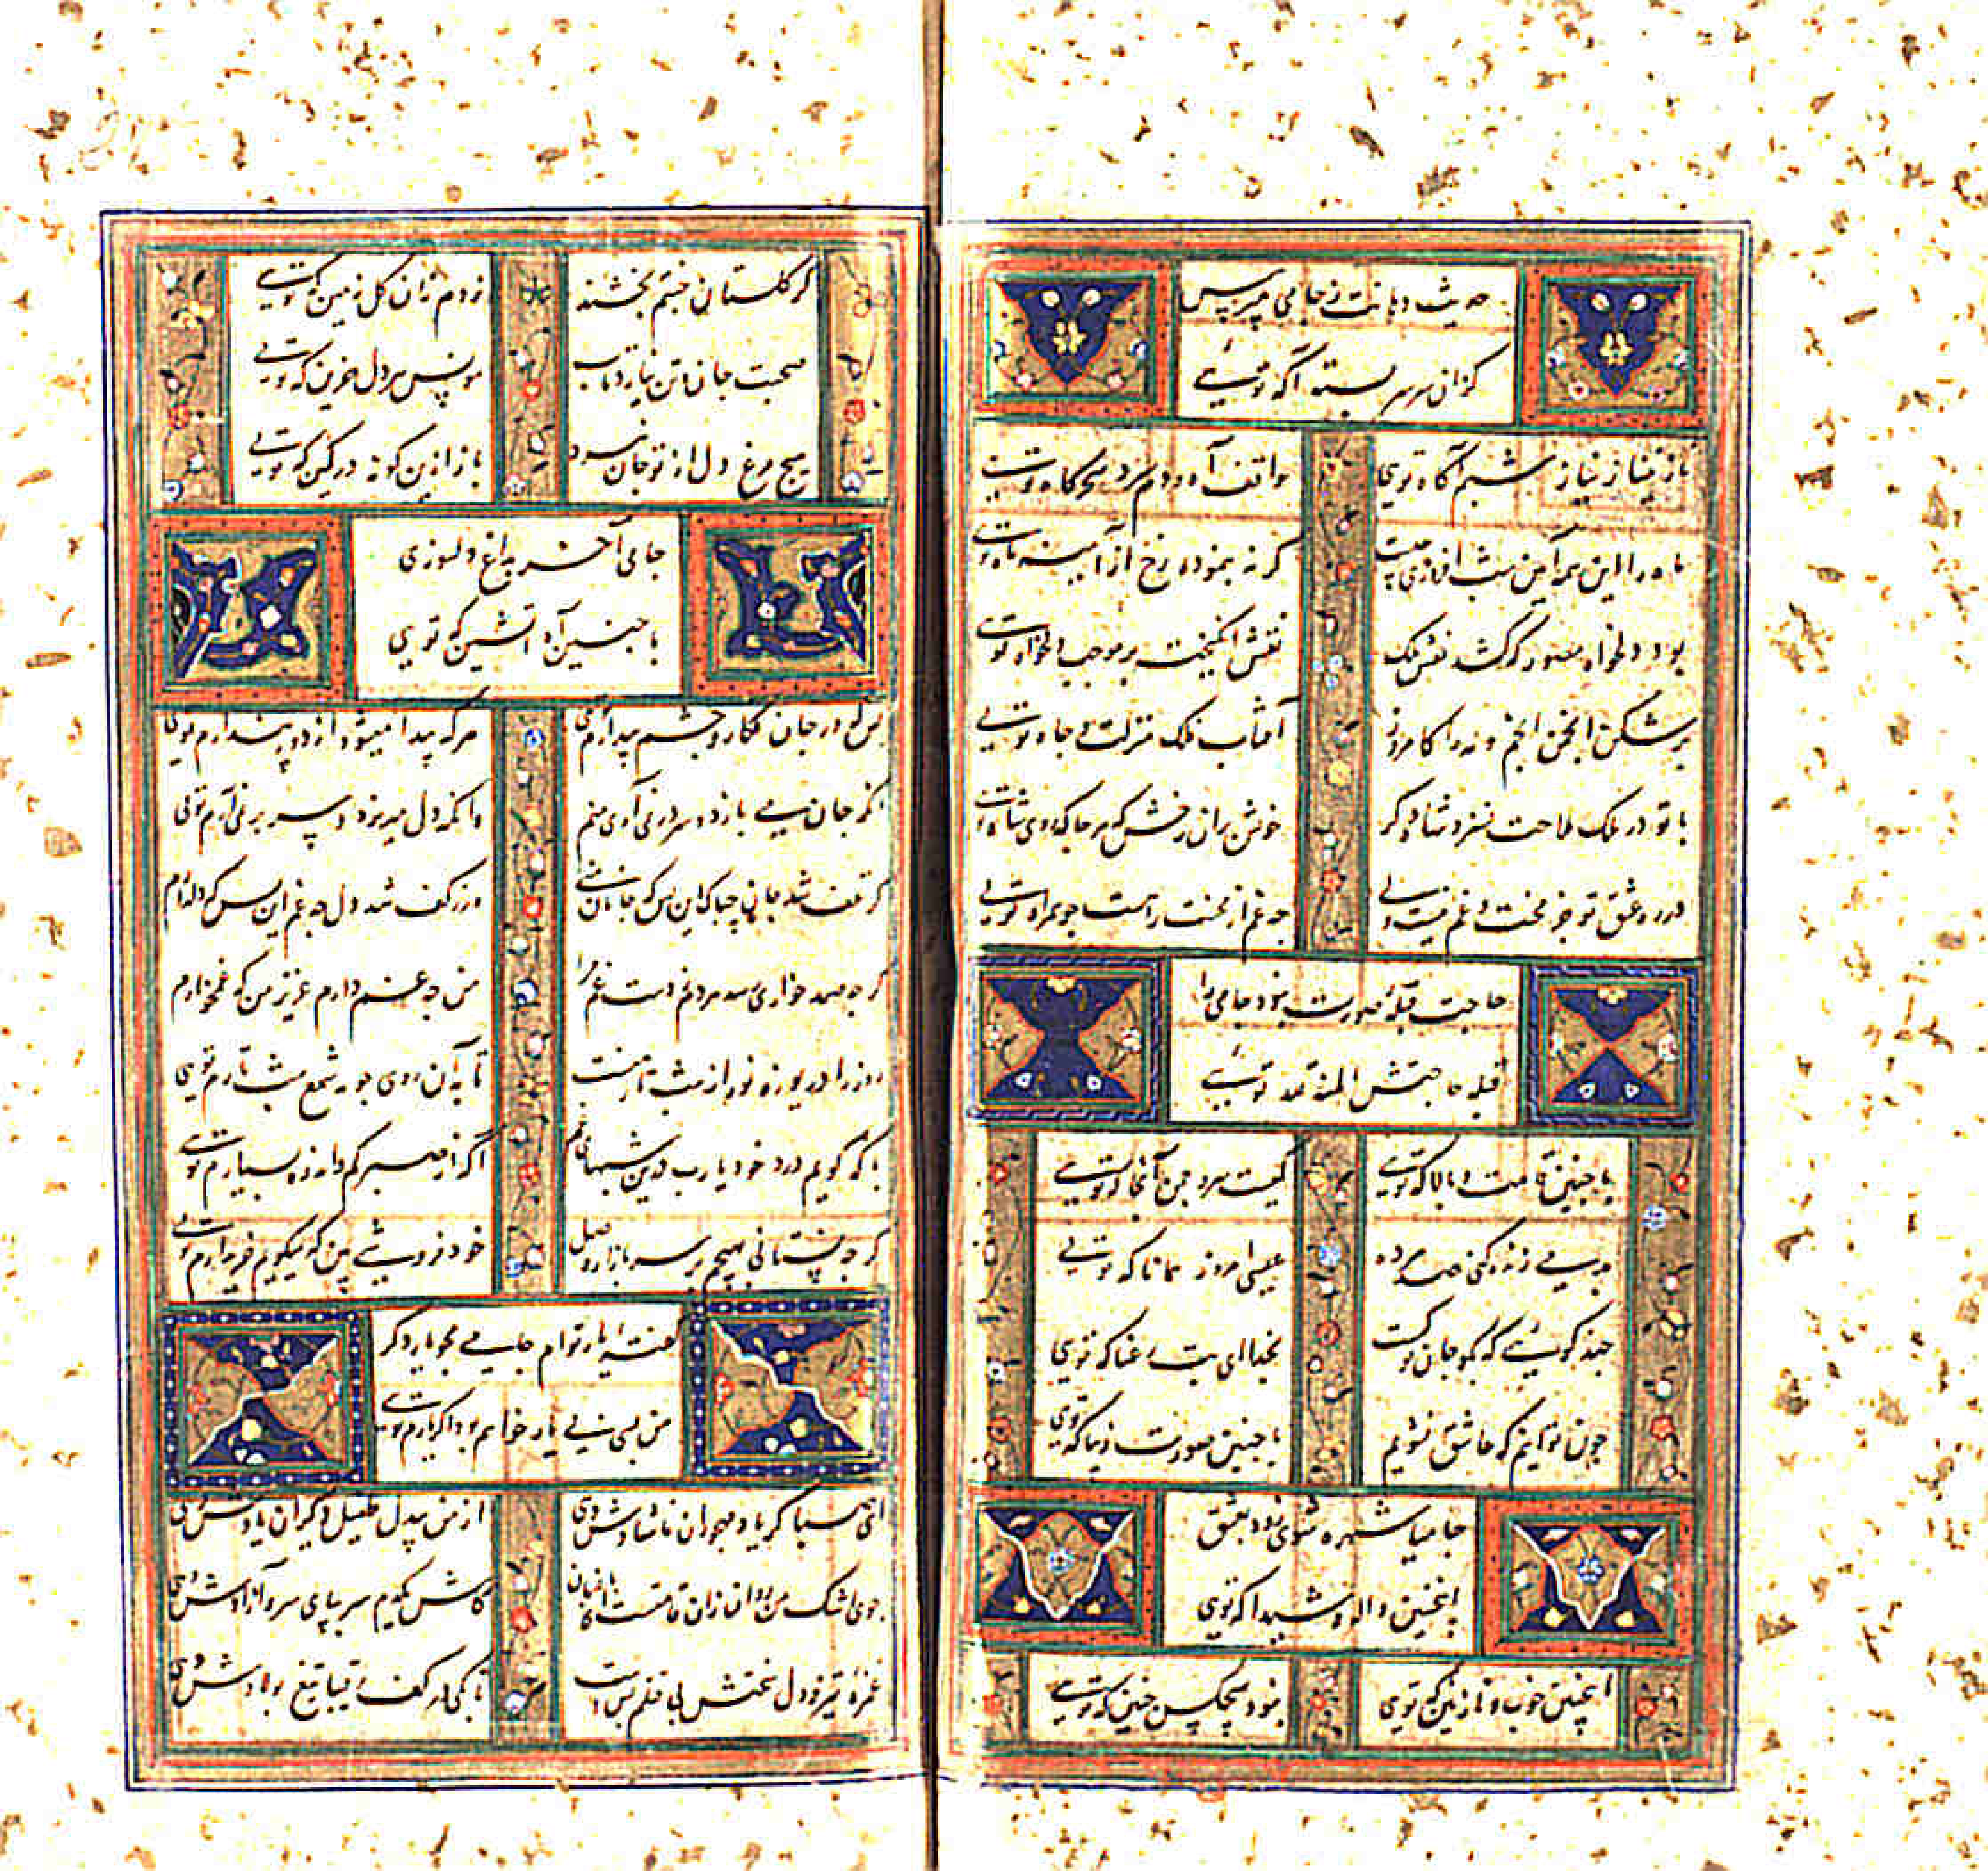 حدیث دهانت ز جامی مپرس
کزان سر سربسته آگه تویی
باز نیاز شبم آگاه تویی
واقف آه و دم سرد سحرگاه تویی
ماه را این همه آیین شب افروزی چیست
گر نه بنموده رخ از آینه ماه تویی
بود دلخواه مصور که کشد نقش ملک
نقش انگیخت بر موجب دلخواه تویی
بر شکن انجمن انجم و مه را کامروز
آفتاب فلک منزلت و جاه تویی
با تو در ملک ملاحت نسزد شاه دگر
خوش بران رخش که هر جا که روی شاه تویی
در ره عشق تو جز محنت و غم نیست ولی
چه غم از محنت راهست چو همراه تویی
حاجت قبله صورت نبود جامی را
قبله حاجتش المنة لله تویی
با چنین قامت و بالا که تویی
کیست سرو چمن آنجا که تویی
به یکی زنده کنی صد مرده
عیسی امروز همانا که تویی
چند گویی که بگو جان تو کیست
بخدا ای بت رعنا که تویی
چون توانیم که عاشق نشویم
با چنین صورت زیبا که تویی
جامیا شهره شوی زود بعشق
اینچنین واله و شیدا که تویی
اینچنین خوب و نازنین که تویی
نبود هیچکس چنین که تویی
گر گلستان خشتم بخشند
نروم زان گل زمین که تویی
صحبت جان و تن نیارد تاب
مونس هر دل حزین که تویی
هیچ مرغ دل از تو جان نبرد
باز ازین گونه در کمین که تویی
جامی آخر بداغ دلسوزی
با چنین آه آتشین که تویی
بس که در جان فگار و چشم بیدارم تویی
هر که پیدا میشود از دور پندارم تویی
آنکه جان می بازد و سر در نمی آری منم
وانکه دل میبرد و سر بر نمی آرم تویی
گر تلف شد جان چه باک این بس که جانان منی
ور ز کف شد دل چه غم این بس که دلدارم
گر چه صد خواری رسد هر دم ز دست غم مرا
من چه غم دارم عزیز من که غمخوارم
روز را دریوزه نور از شب تار منست
تا به آن روی چو مه شمع شب تارم تویی
با که گویم درد خود یارب درین شبهای غم
آگه از صبر کم و اندوه بسیارم تویی
گر چه نستانی بهیچ بر سر بازار وصل
خود فروشی بین که میگویم خریدارم تویی
گفته یار توام جامی مجو یار دگر
من بسی بی یار خواهم بود اگر یارم تویی
ای صبا گر یاد مهجوران ناشاد دهی
از من بیدل طفیل دیگران یادش دهی
جوی اشک من روان زان قامت
کاش بیکدم سر بپای سرو آزادش دهی
غمزه تیر زد دل سختش پی قتلم بس است
تا کی در کف رقیبا تیغ